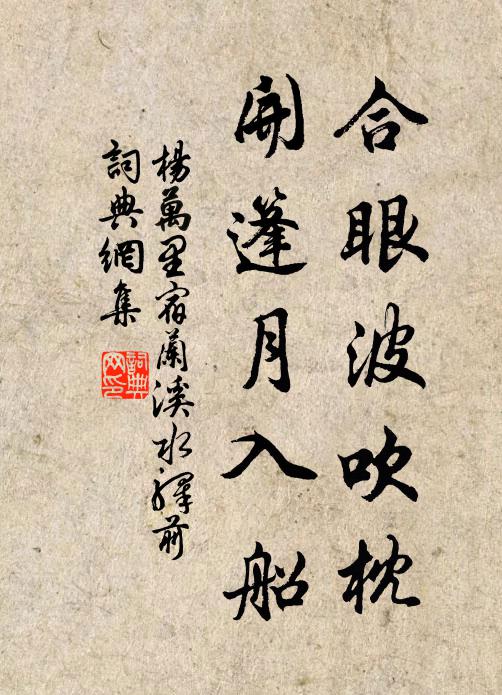 合眼波吹枕
開篷月入船
楊萬里宿蘭溪水驛前
詞典網集
詞典網印